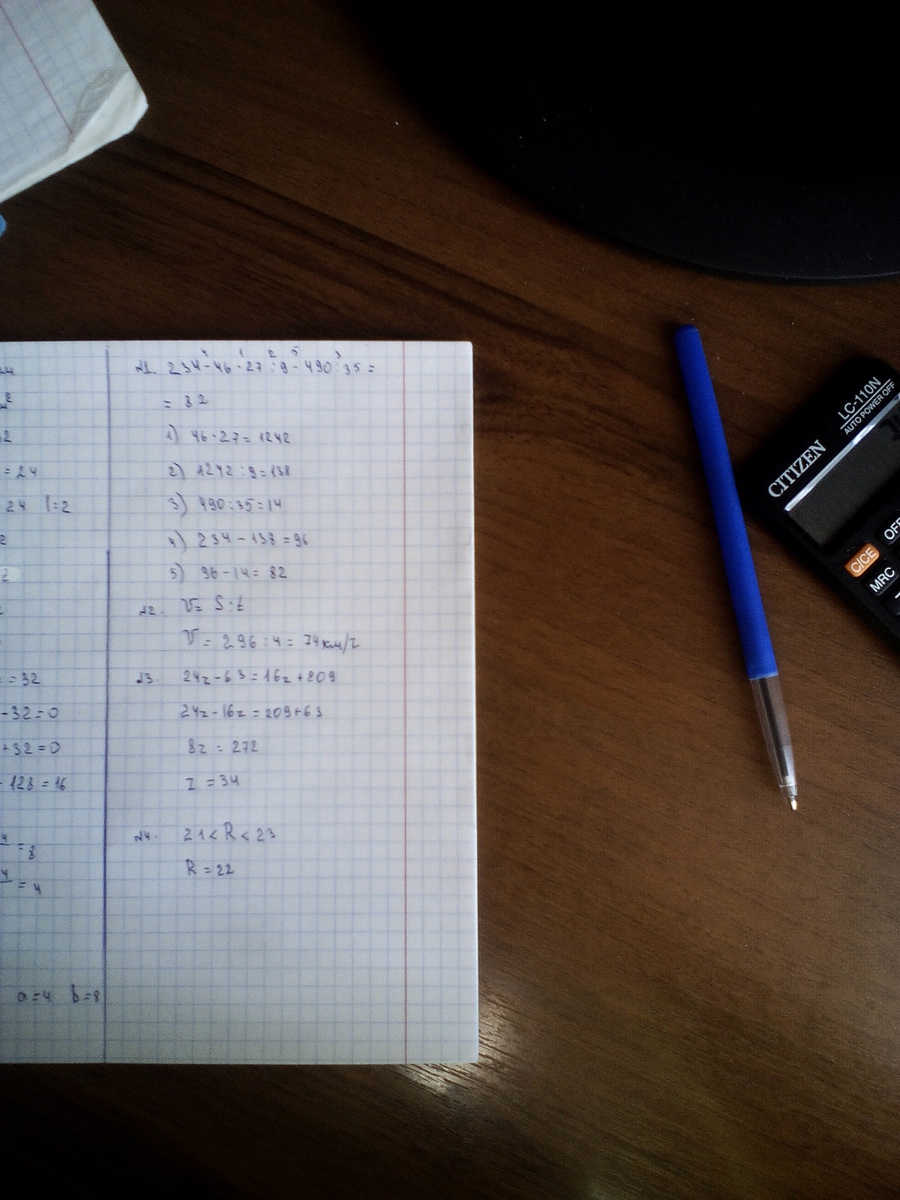 = 24
24 l=2
= 32
- 32 = 0
+ 32 = 0
- 128 = 16
= 8
= 4
a = 4 b = 8
21. 234 - 46 · 27 : 9 - 490 : 35 =
= 82
1) 46 · 27 = 1242
2) 1242 : 9 = 138
3) 490 : 35 = 14
4) 234 - 138 = 96
5) 96 - 14 = 82
22. V = S : t
V = 296 : 4 = 74 км/г
23. 24z - 63 = 16z + 209
24z - 16z = 209 + 63
8z = 272
z = 34
24. 21 < R < 23
R = 22
CITIZEN
LC-110N
AUTO POWER OFF
C/CE
MRC